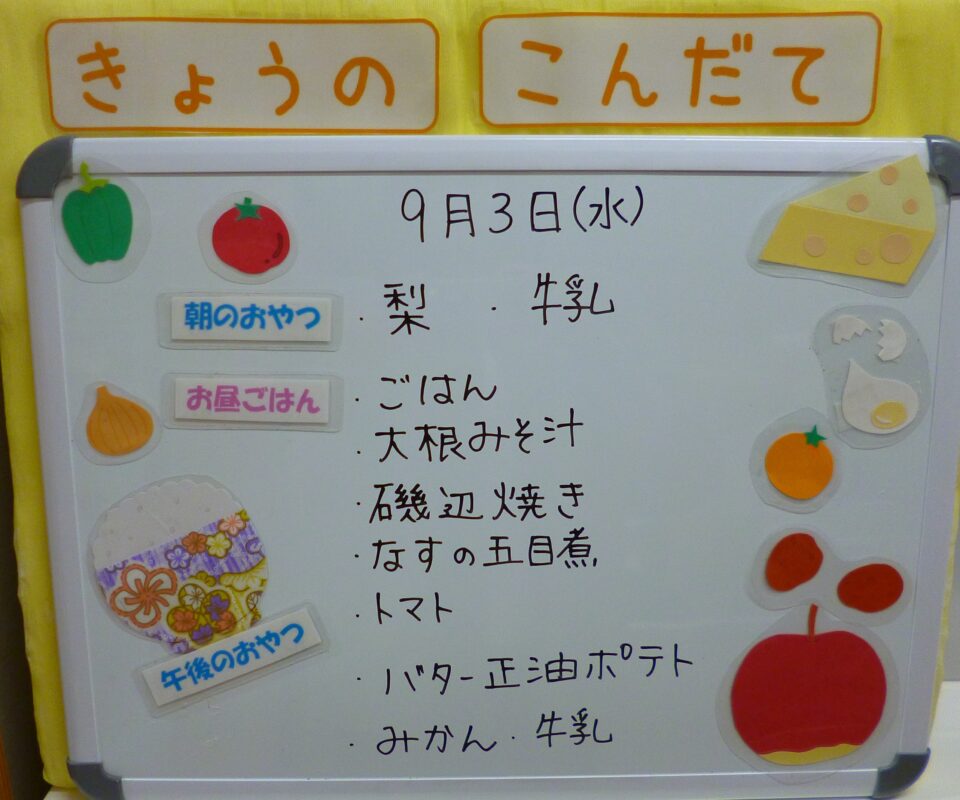 きょうの こんだて
9月3日(水)
朝のおやつ ・梨 ・牛乳
お昼ごはん ・ごはん
・大根みそ汁
・磯辺焼き
・なすの五目煮
・トマト
午後のおやつ ・バター正油ポテト
・みかん・牛乳